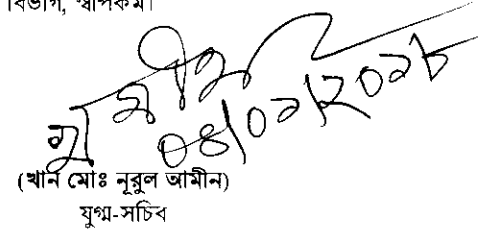 বিভাগ, স্বাপকম।
০৪/০২/২০২৮
(খান মোঃ নূরুল আমীন)
যুগ্ম-সচিব